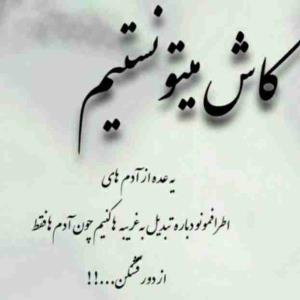 کاش میتونستیم
یه عده از آدم های
اطرافمونو دباره تبدیل به غریبه ها کنیم چون آدم ها فقط
از دور قشنگن...!!